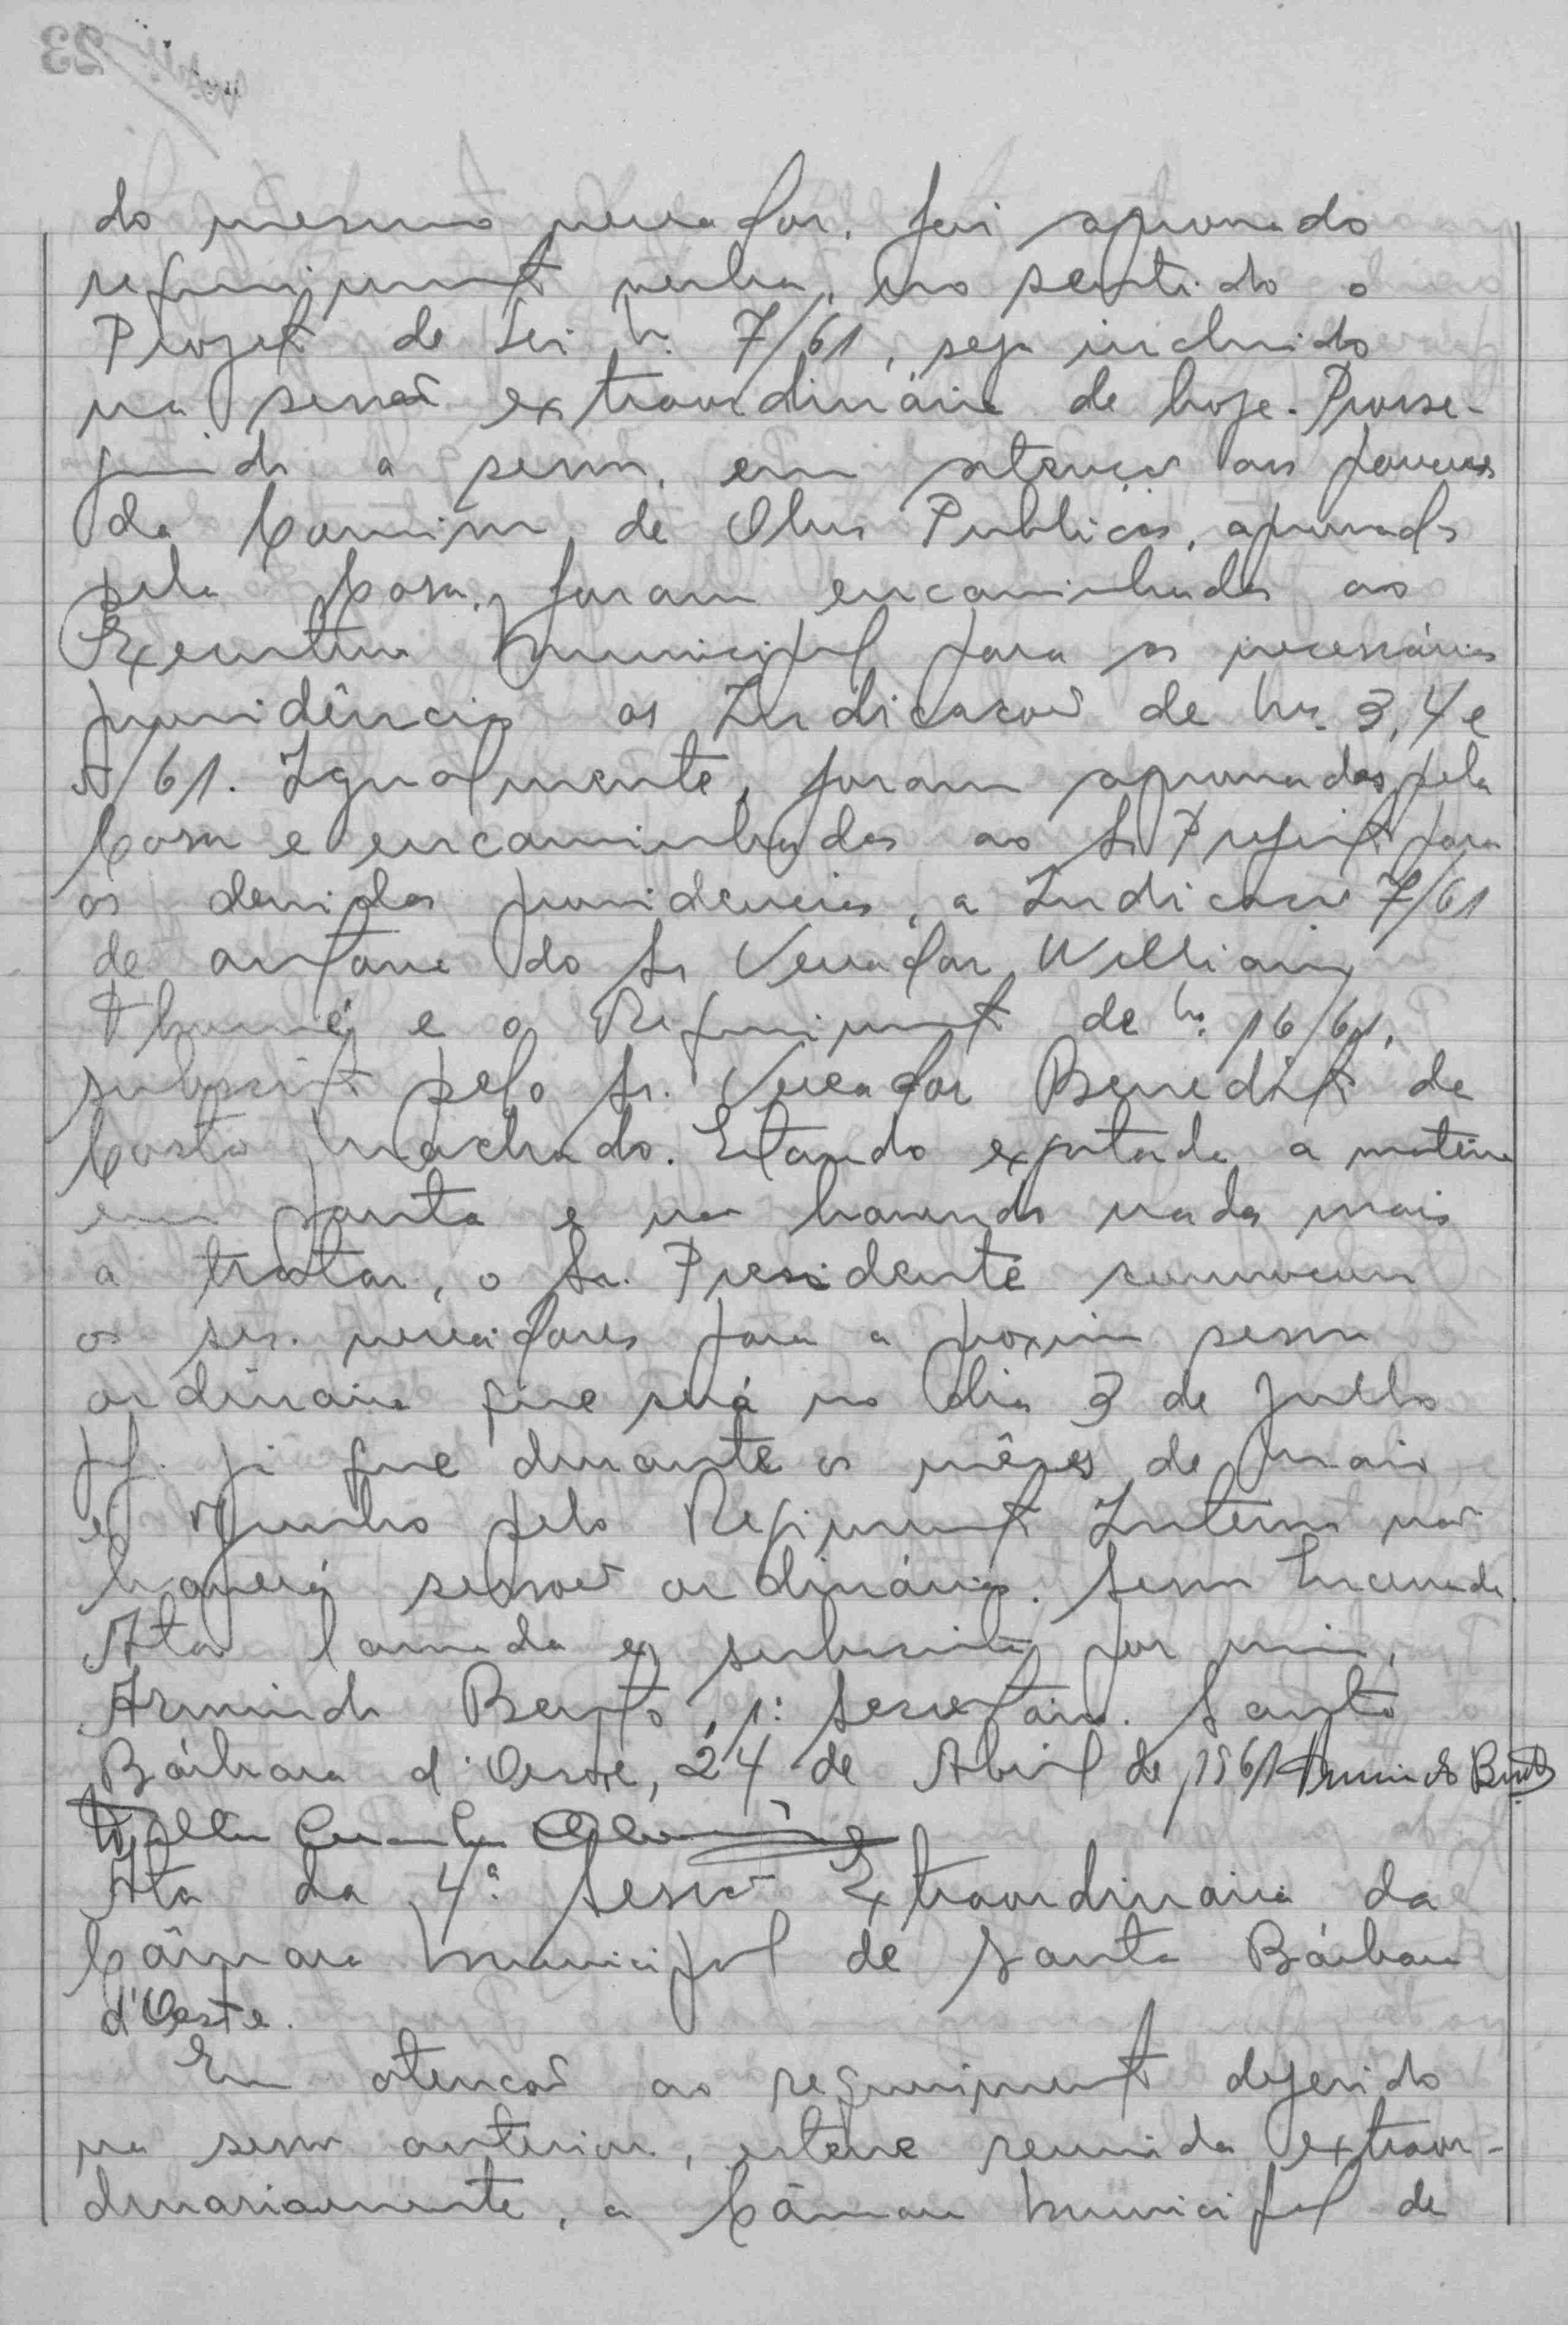 do mesmo vereador. Foi aprovado
requerimento verbal, no sentido o
Projeto de Lei n. 7/61, seja incluido
na sessão extraordinária de hoje. Prosse-
guindo a sessão, em atenção aos pareceres
da Comissão de Obras Publicas, aprovado
pela Casa, foram encaminhadas ao
Executivo Municipal para as necessárias
providências as Indicacões de nrs. 3, 4 e
/61. Igualmente, foram aprovadas pela
Casa e encaminhadas ao Sr Prefeito para
as devidas providencias, a Indicacão 7/61
de autoria do Sr Vereador William
Thomé e o Requerimento de n. 16/61,
subscrito pelo Sr. Vereador Benedito da
Costa Machado. Estando esgotada a materia
em pauta e não havendo nada mais
a tratar, o Sr. Presidente convocou
os srs. vereadores para a proxima sessão
ordinária que será no dia 3 de Julho
pf. já que durante os mêses de Maio
e Junho pelo Regimento Interno não
haverá sessões ordinárias. Sessão Encerrada.
Ata lavrada e subscrita por mim,
Armindo Bento, 1º Secretário. Santa
Bárbara d'Oeste, 24 de Abril de 1961 Armindo Bento
Ata da 4ª Sessão Extraordinaria da
Câmara Municipal de Santa Bárbara
d'Oeste.
Em atencão ao requerimento deferido
na sessão anterior, esteve reunida extraor-
dinariamente, a Câmara Municipal de